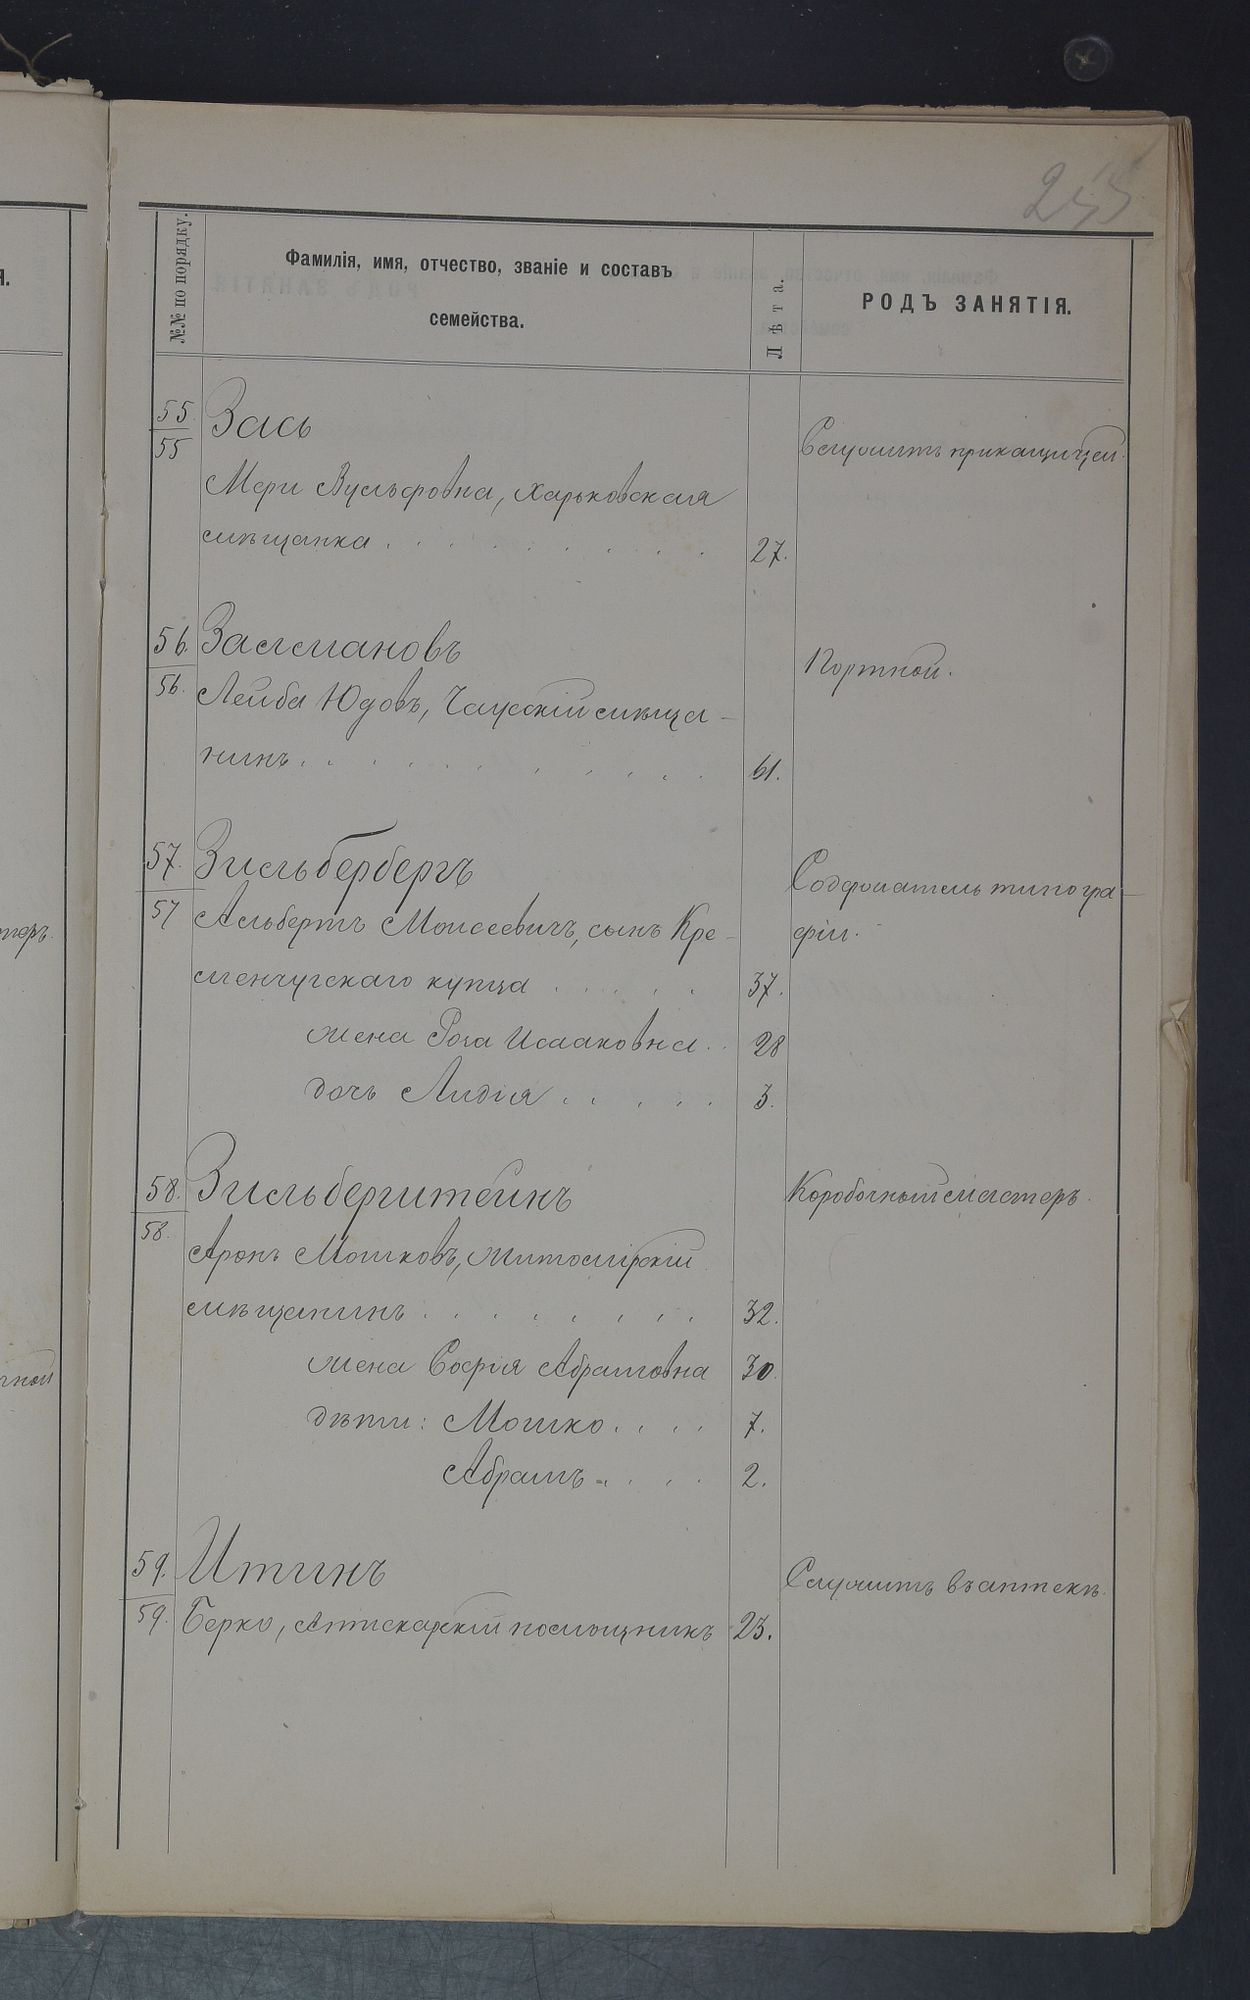 255
№№ по порядку.
Фамилія, имя, отчество, званіе и составъ
семейства.
Лѣта.
РОДЪ ЗАНЯТІЯ.
55.
55
Зась
Служитъ приказчицей.
Мери Вульфовна, Харьковская
мѣщанка . . . . . . . . . 27.
56.
56.
Залмановъ
Портной.
Лейба Юдовъ, Чаусскій мѣща-
нинъ . . . . . . . . . 61.
57.
57
Зильбербергъ
Содержатель типогра-
фіи.
Альбертъ Моисеевичъ, сынъ Кре-
менчугскаго купца . . . . . 37.
жена Роза Исааковна . . 28
дочь Лидія . . . . . 3.
58.
58.
Зильберштейнъ
Коробочный мастеръ.
Аронъ Мошковъ, Житомірскій
мѣщанинъ . . . . . . . 32.
жена Софія Абрамовна 30.
дѣти: Мошко . . . . 7.
Абрамъ . . . . 2.
59.
59.
Итинъ
Служитъ въ аптекѣ.
Берко, Аптекарскій помощникъ 23.